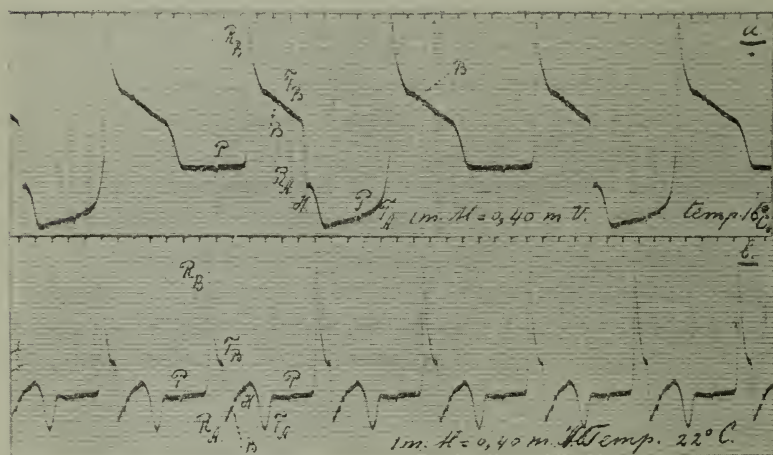 R_B
a
T_B
B
B
P
R_A
H
P
T_A
1 m. M = 0,40 m V.
temp. 16° C.
R_B
b.
T_B
P
P
H
R_A
T_A
B
1 m. M = 0,40 m. V. Temp. 22° C.